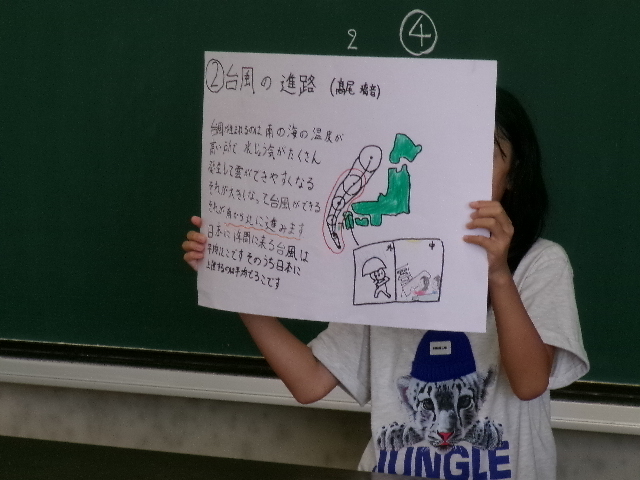 2 ④
②台風の進路 (髙尾  
台風が生まれるのは南の海の温度が
高いので、水じょう気がたくさん
発生して雲ができやすくなる
それが大きくなって台風ができる
それが南から北に進みます
日本に1年間に来る台風は
です そのうち日本に
上陸するのは平均で3こです
外 中
JUNGLE